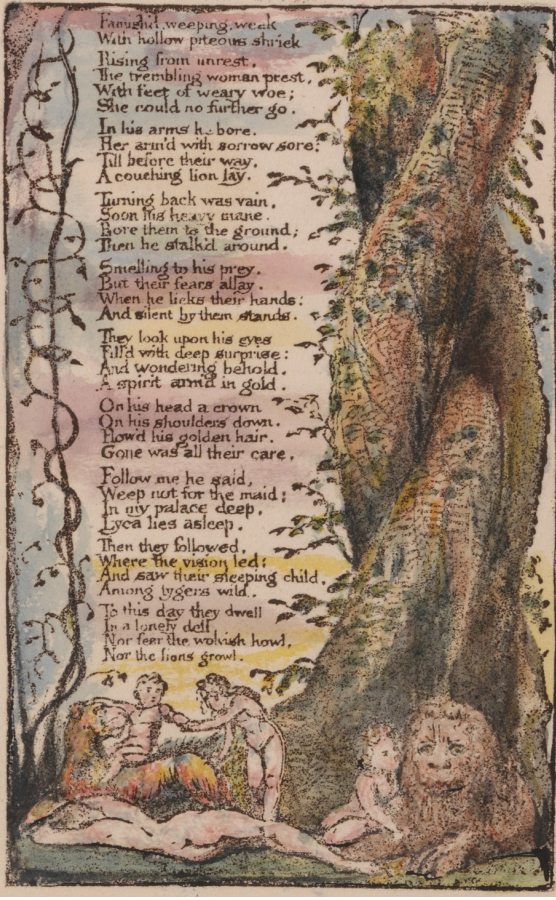 Famish'd, weeping, weak
With hollow piteous shriek
Rising from unrest,
The trembling woman prest,
With feet of weary woe;
She could no further go.
In his arms he bore.
Her arm'd with sorrow sore;
Till before their way,
A couching lion lay.
Turning back was vain,
Soon his heavy mane.
Bore them to the ground;
Then he stalk'd around.
Smelling to his prey.
But their fears allay.
When he licks their hands:
And silent by them stands.
They look upon his eyes
Fill'd with deep surprise:
And wondering behold.
A spirit arm'd in gold.
On his head a crown
On his shoulders down.
Flow'd his golden hair.
Gone was all their care.
Follow me he said,
Weep not for the maid;
In my palace deep,
Lyca lies asleep.
Then they followed,
Where the vision led:
And saw their sleeping child.
Among tygers wild.
To this day they dwell
In a lonely dell
Nor fear the wolvish howl,
Nor the lions growl.